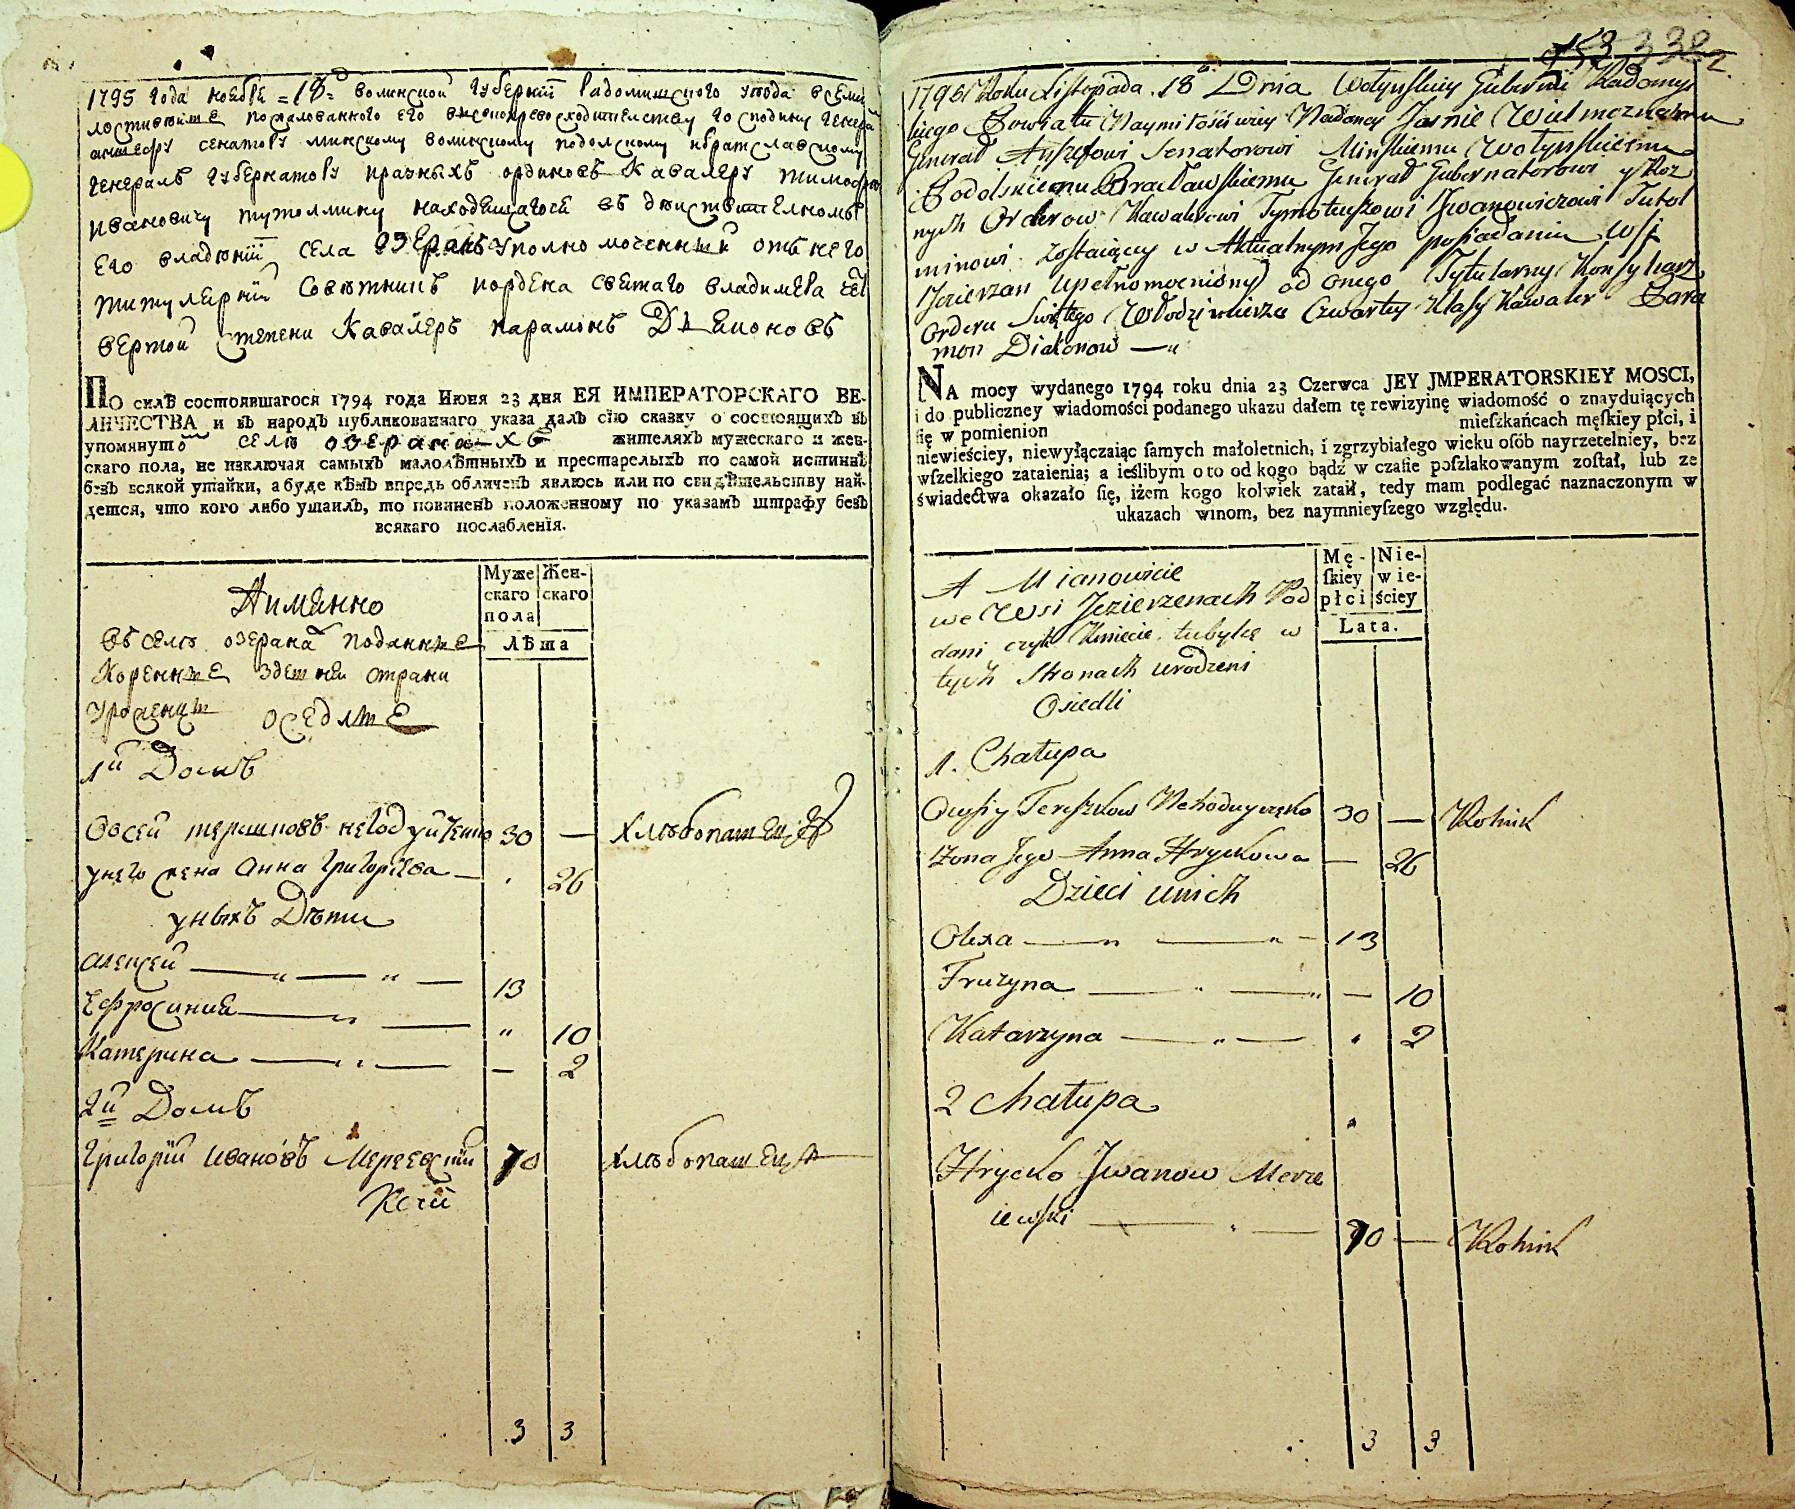 1795 года ноебра =18= волинской губернїи радомишского уезда всеми
лостивейше пожалованного его високопревосходителству господину генерал
аншефу сенатору минскому волинскому подолскому ибратславскому
генералъ губернатору иразныхъ ординовъ Кавалеру тимофею
ивановичу тутолмину находещагосе въ действителномъ
его владенїи села Озеранъ уполномоченный отъ него
титулярнїй советникъ иордена светаго владимера чет
вертой степени Кавалеръ парамонъ Дьеконовъ
По силѣ состоявшагося 1794 года Июня 23 дня ЕЯ ИМПЕРАТОРСКАГО ВЕ-
ЛИЧЕСТВА и въ народъ публикованнаго указа далъ сїю сказку о состоящихъ въ
упомянутомъ селе озеранахъ жителяхъ мужескаго и жен-
скаго пола, не изключая самыхъ малолѣтныхъ и престарелыхъ по самой истиннѣ
безъ всякой утайки, а буде кѣмъ впредь обличенъ явлюсь или по свидѣтельству най-
дется, что кого либо утаилъ, то повиненъ положенному по указамъ штрафу безъ
всякаго послабленїя.
Аимянно
въ селе озеранахъ поданные
Коренные здешней страни
уроженцы оседлые
Муже
скаго
пола
Жен-
скаго
Лѣта
1й Домъ
Овсей терешковъ негодуйченко 30 — хлебопашецъ
унего жена анна григорева — 26
унихъ Дети
алексей — „ — „ — 13
Ефросиния — „ — „ 10
Катерина — „ — — 2
2й Домъ
Григорїй ивановъ Мержевскїй 70 хлебопашецъ
3 3
153 332
2.
1795 Roku Listopada 18 Dnia Wołynskiey Gubernii Radomys
kiego Powiatu Naymiłościwiey Nadaney Jasnie Wielmoznemu
Generał Anszefowi Senatorowi Minskiemu Wołynskiemu
Podolskiemu Bracławskiemu Generał Gubernatorowi y Roz
nych Orderow Kawalerowi Tymoteuszowi Jwanowiczowi Tutol
minowi zostaiącey w Aktualnym Jego posiadaniu Wsi
Jezierzan upełnomocniony od onego Tytularny Konsyliarz
Orderu Swiętego Włodzimierza Czwartey Klasy Kawaler Para
mon Diakonow — „
NA mocy wydanego 1794 roku dnia 23 Czerwca JEY JMPERATORSKIEY MOSCI,
i do publiczney wiadomości podanego ukazu dałem tę rewizyinę wiadomość o znayduiących
ſię w pomienion mieſzkańcach męſkiey płci, i
niewieściey, niewyłączaiąc ſamych małoletnich, i zgrzybiałego wieku osób nayrzetelniey, bez
wſzelkiego zataienia; a ieślibym o to od kogo bądź w czaſie poſzlakowanym zoſtał, lub ze
świadectwa okazało ſię, iżem kogo kolwiek zataił, tedy mam podlegać naznaczonym w
ukazach winom, bez naymnieyſzego względu.
A Mianowicie
we Wsi Jezierzenach Pod
dani czyli Kmiecie tubylcę w
tych Stronach urodzeni
Osiedli
Mę-
ſkiey
płci
Nie-
wie-
ściey
Lata.
1. Chałupa
Owsiy Tereszkow Nehoduyczęko 30 — Rolnik
Zona Jego Anna Hryckowa — 26
Dzieci unich
Olexa — „ — „ — 13
Fruzyna — „ — „ — 10
Katarzyna — „ — „ 2
2 Chałupa
Hrycko Jwanow Merze
iewski — „ — 70 — Rolnik
3 3